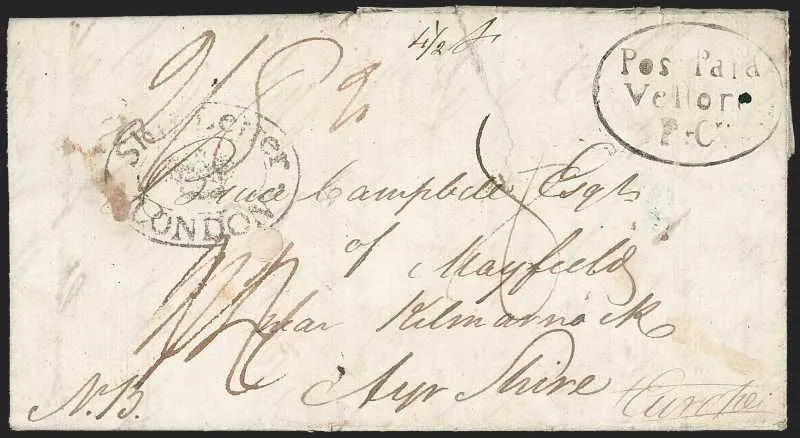 4½ A
Post Paid
Vellore
P. C.
2/8
2
Ship Letter
LONDON
Bruce Campbell Esqr
of Mayfield
near Kilmarnock
Ayr Shire
N.B.
Europe